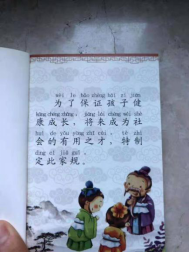 wèi le bǎo zhèng hái zi jiàn
为了保证孩子健
kāng chéng zhǎng , jiāng lái chéng wéi shè
康成长，将来成为社
huì de yǒu yòng zhī cái , tè zhì
会的有用之才，特制
dìng cǐ jiā guī .
定此家规。